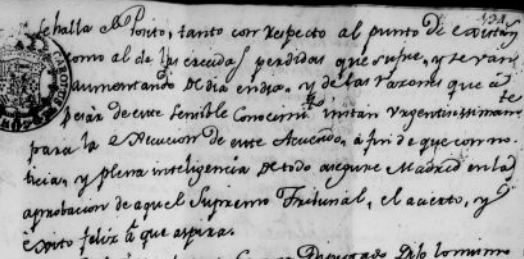 se halla el Posito, tanto con respecto al punto de
como al de las crecidas perdidas que sufre, y se van
aumentando de dia en dia, y de las razones que a
pesar de este sensible Conocimto instan Urgentissimamte
para la execucion de este Acuerdo, a fin de que con no-
ticia, y plena inteligencia de todo asegure Madrid en la
aprobacion de aquel Supremo Tribunal, el acierto, y
exito feliz a que aspira.
Diputado Dijo lo mismo